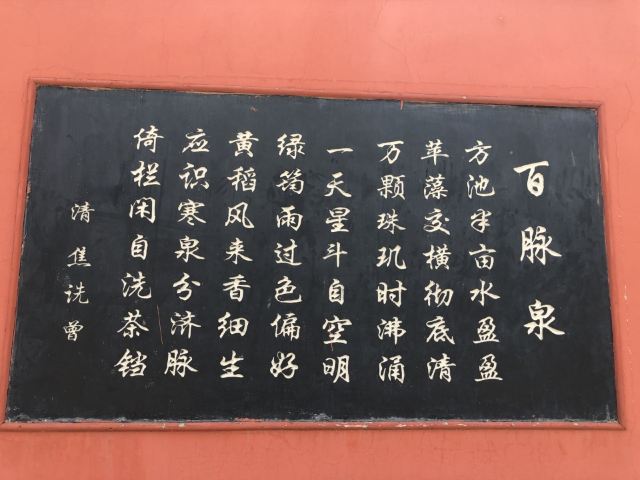 百脉泉
方池半亩水盈盈
苹藻交横彻底清
万颗珠玑时沸涌
一天星斗自空明
绿筠雨过色偏好
黄稻风来香细生
应识寒泉分济脉
倚栏闲自洗茶铛
清焦诜曾